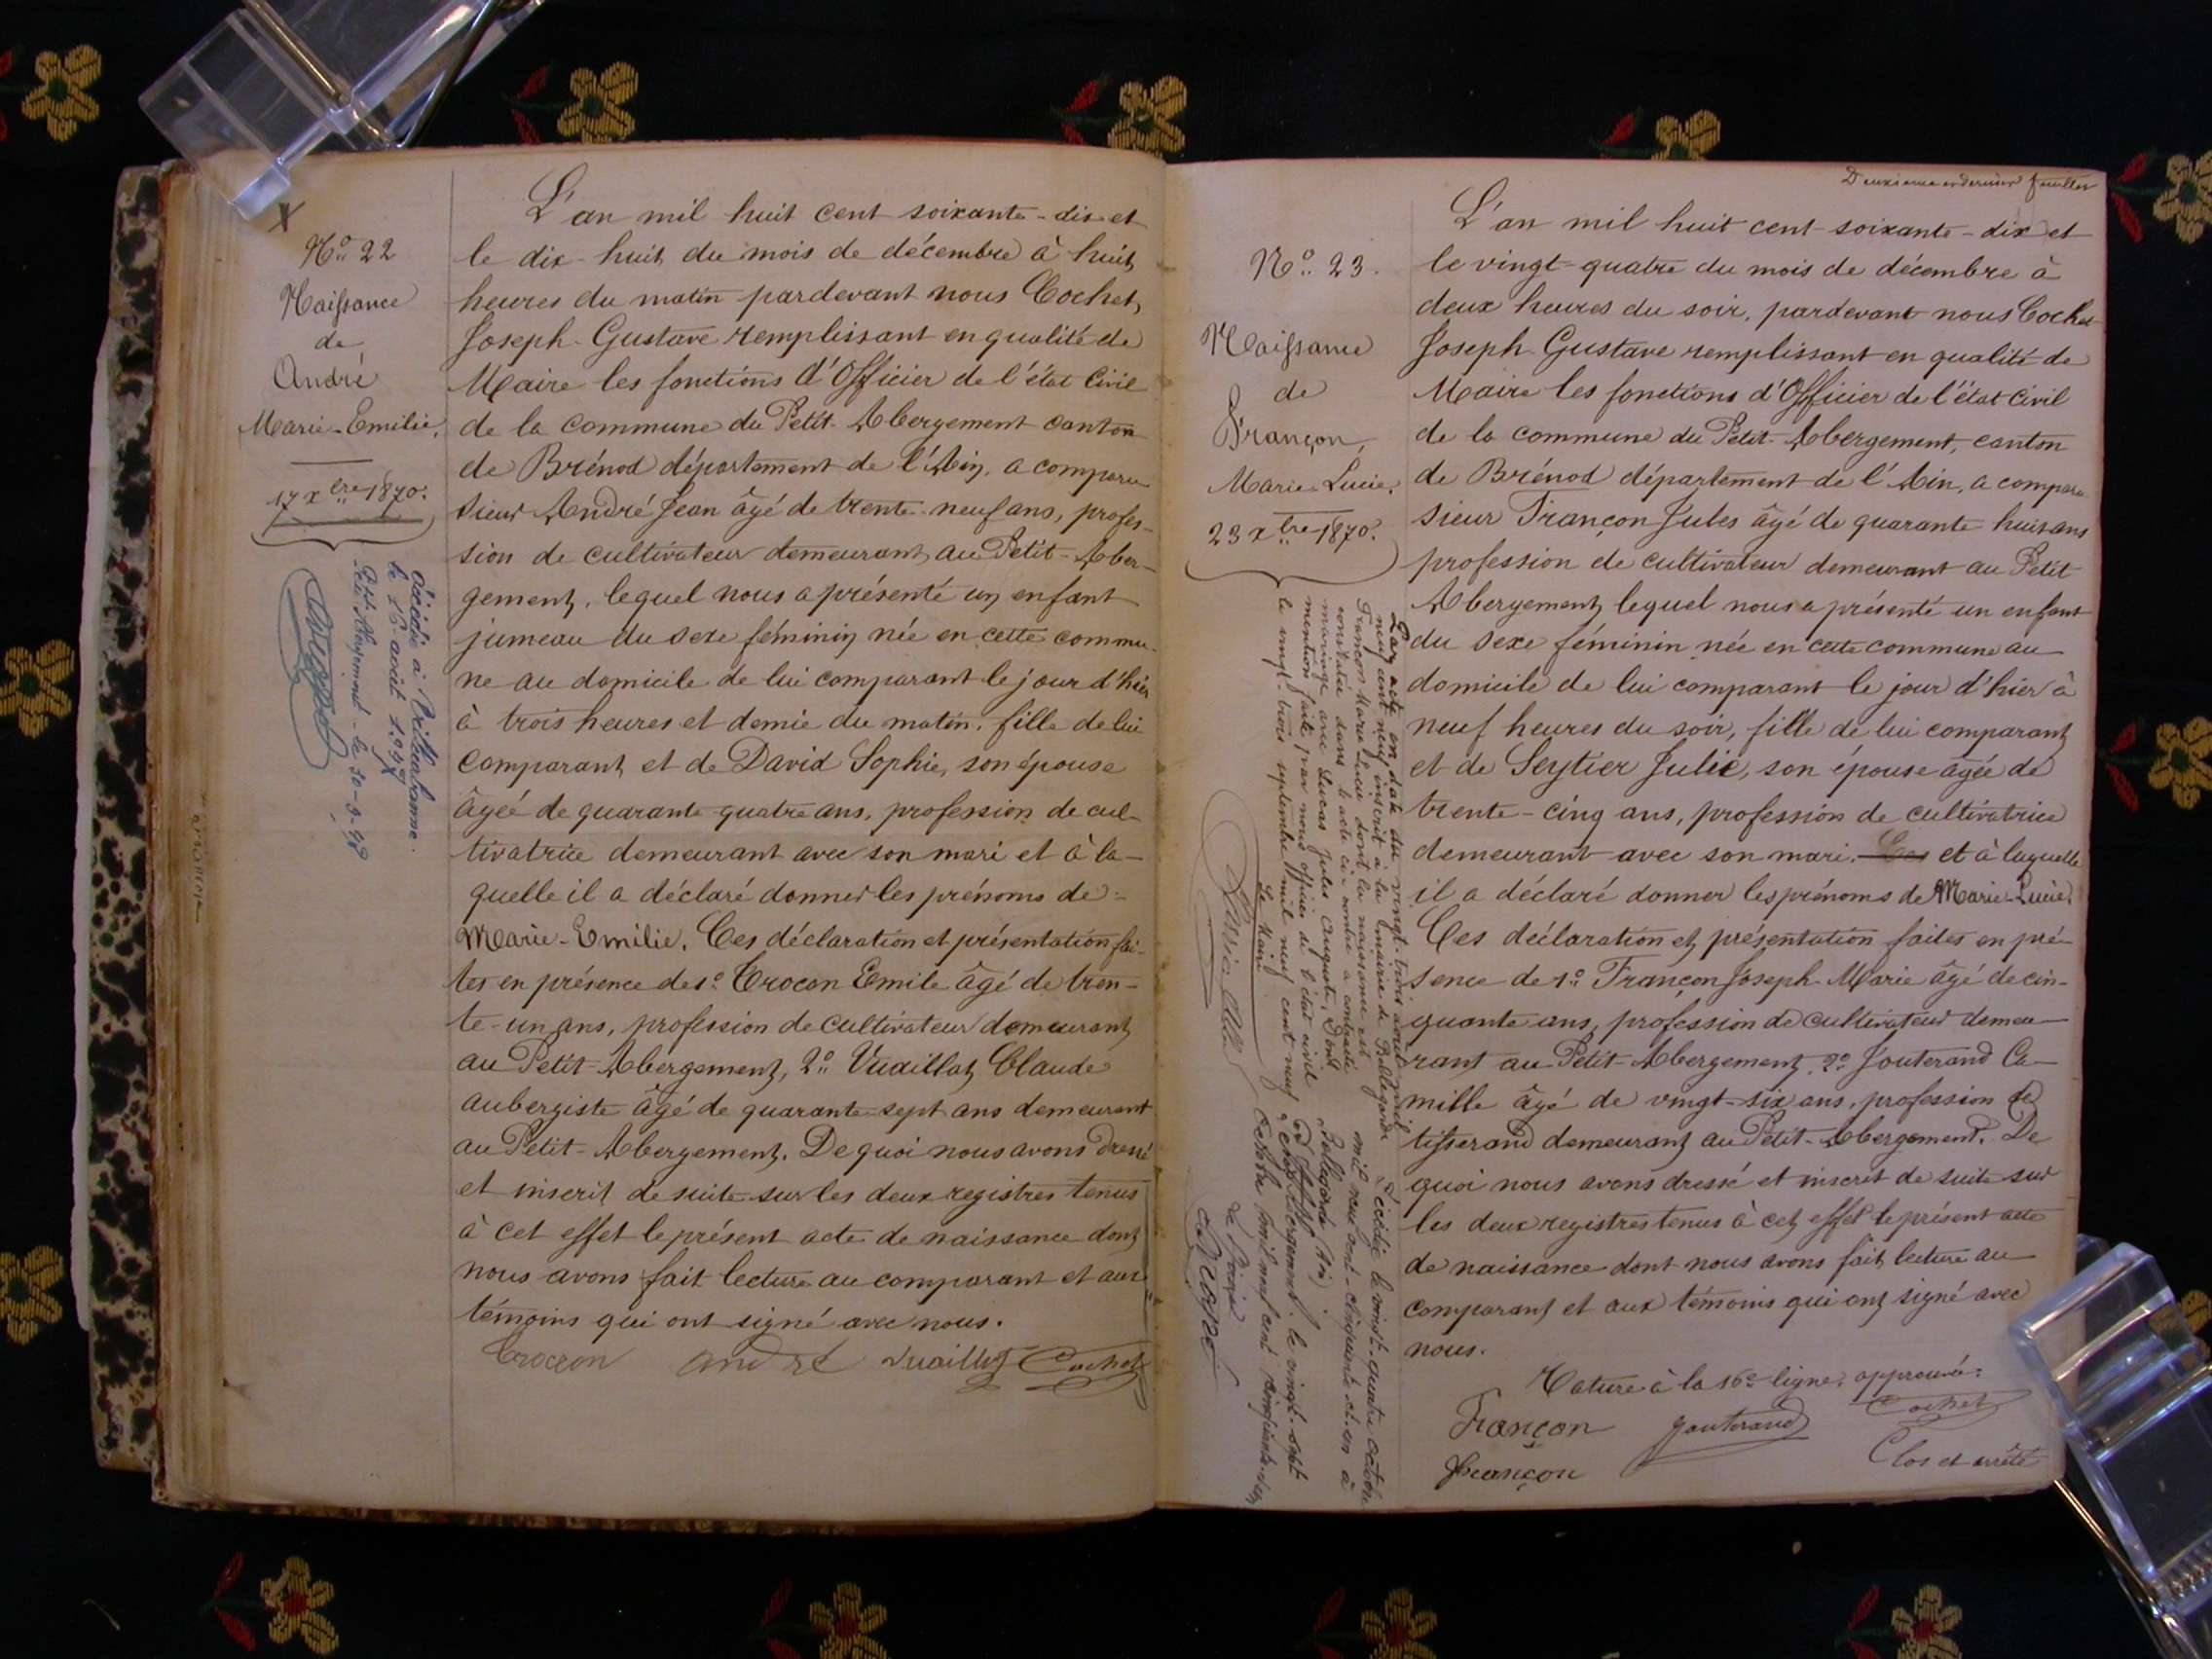 No. 22
Naissance
de
André
Marie-Emilie.
17 xbre 1870.
décédée à Villeurbanne
le 26 août 1947
L'an mil huit cent soixante-dix et
le dix-huit du mois de décembre à huit
heures du matin pardevant nous Cochet
Joseph-Gustave remplissant en qualité de
Maire les fonctions d'Officier de l'état Civil
de la commune du Petit-Abergement canton
de Brénod département de l'Ain, a comparu
sieur André Jean âgé de trente-neuf ans, profes-
sion de cultivateur demeurant au Petit-Aber-
gement, lequel nous a présenté un enfant
jumeau du sexe féminin née en cette commu-
ne au domicile de lui comparant le jour d'hier
à trois heures et demie du matin, fille de lui
comparant et de David Sophie, son épouse
âgée de quarante-quatre ans, profession de cul-
tivatrice demeurant avec son mari et à la-
quelle il a déclaré donner les prénoms de
Marie-Emilie. Ces déclaration et présentation fai-
tes en présence de 1o. Crocon Emile âgé de tren-
te-un ans, profession de cultivateur demeurant
au Petit-Abergement, 2o. Vuaillat Claude
aubergiste âgé de quarante-sept ans demeurant
au Petit-Abergement. De quoi nous avons dressé
et inscrit de suite sur les deux registres tenus
à cet effet le présent acte de naissance dont
nous avons fait lecture au comparant et aux
témoins qui ont signé avec nous.
andré Vuaillat Cochet
Deuxième et dernier feuillet
No. 23.
Naissance
de
Françon,
Marie-Lucie.
23 xbre 1870.
Par acte en date du vingt-trois août mil
neuf cent neuf inscrit à la mairie de Bellegarde
Françon Marie Lucie dont la naissance est
constatée dans l'acte ci-contre a contracté
mariage avec Lucas Jules Auguste, Dont
mention faite par nous officier de l'état civil
le vingt-trois septembre mil neuf cent neuf
Le Maire
Décédée le vingt-quatre octobre
mil neuf cent cinquante et un à
Bellegarde (Ain)
Pt Abergement le vingt-sept
octobre mil neuf cent cinquante-un
le Maire
L'an mil huit cent soixante-dix et
le vingt-quatre du mois de décembre à
deux heures du soir, pardevant nous Cochet
Joseph-Gustave remplissant en qualité de
Maire les fonctions d'Officier de l'état Civil
de la commune du Petit-Abergement, canton
de Brénod département de l'Ain, a comparu
sieur Françon Jules âgé de quarante huit ans
profession de cultivateur demeurant au Petit
Abergement lequel nous a présenté un enfant
du sexe féminin née en cette commune au
domicile de lui comparant le jour d'hier à
neuf heures du soir, fille de lui comparant
et de Seytier Julie, son épouse âgée de
trente-cinq ans, profession de cultivatrice
demeurant avec son mari. et à laquelle
il a déclaré donner les prénoms de Marie-Lucie.
Ces déclaration et présentation faites en pré-
sence de 1o. Françon Joseph-Marie âgé de cin-
quante ans, profession de cultivateur demeu-
rant au Petit-Abergement, 2o. Jouterand Ca-
mille âgé de vingt-six ans, profession de
tisserand demeurant au Petit-Abergement. De
quoi nous avons dressé et inscrit de suite sur
les deux registres tenus à cet effet le présent acte
de naissance dont nous avons fait lecture au
comparant et aux témoins qui ont signé avec
nous.
Rature à la 16e ligne, approuvée.
Françon Jouterand Cochet
françon
Clos et arrêté